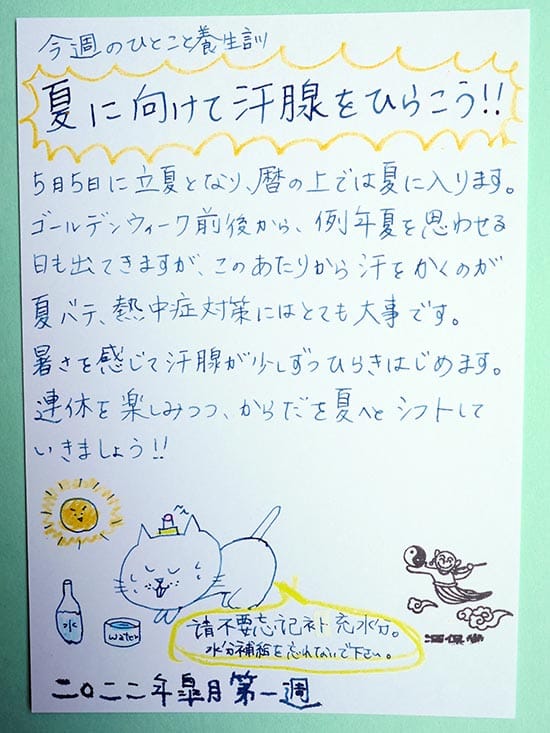 今週のひとこと養生訓
夏に向けて汗腺をひらこう!!
5月5日に立夏となり、暦の上では夏に入ります。
ゴールデンウィーク前後から、例年夏を思わせる
日も出てきますが、このあたりから汗をかくのが
夏バテ、熱中症対策にはとても大事です。
暑さを感じて汗腺が少しずつひらきはじめます。
連休を楽しみつつ、からだを夏へと シフトして
いきましょう!!
水
water
请不要忘记补充水分。
水分補給を忘れないで下さい。
二〇二二年皐月第一週